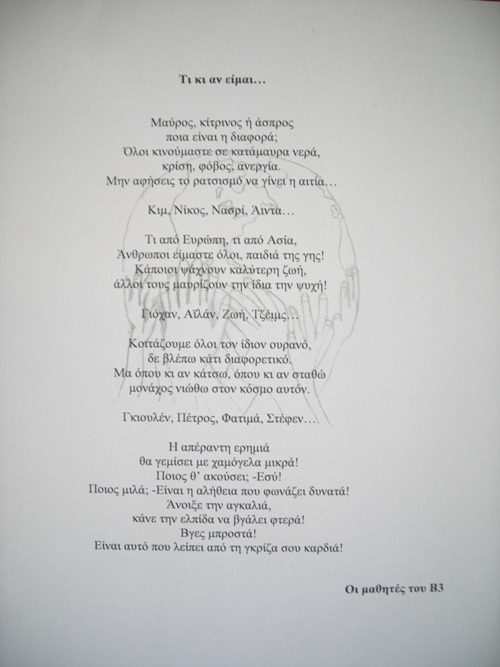 Τι κι αν είμαι…
Μαύρος, κίτρινος ή άσπρος
ποια είναι η διαφορά;
Όλοι κινούμαστε σε κατάμαυρα νερά,
κρίση, φόβος, ανεργία.
Μην αφήσεις το ρατσισμό να γίνει η αιτία…
Κιμ, Νίκος, Νασρί, Άιντα…
Τι από Ευρώπη, τι από Ασία,
Άνθρωποι είμαστε όλοι, παιδιά της γης!
Κάποιοι ψάχνουν καλύτερη ζωή,
άλλοι τους μαυρίζουν την ίδια την ψυχή!
Γιόχαν, Αϊλάν, Ζωή, Τζέιμς…
Κοιτάζουμε όλοι τον ίδιον ουρανό,
δε βλέπω κάτι διαφορετικό.
Μα όπου κι αν κάτσω, όπου κι αν σταθώ
μονάχος νιώθω στον κόσμο αυτόν.
Γκιουλέν, Πέτρος, Φατιμά, Στέφεν…
Η απέραντη ερημιά
θα γεμίσει με χαμόγελα μικρά!
Ποιος θ’ ακούσει; -Εσύ!
Ποιος μιλά; -Είναι η αλήθεια που φωνάζει δυνατά!
Άνοιξε την αγκαλιά,
κάνε την ελπίδα να βγάλει φτερά!
Βγες μπροστά!
Είναι αυτό που λείπει από τη γκρίζα σου καρδιά!
Οι μαθητές του Β3